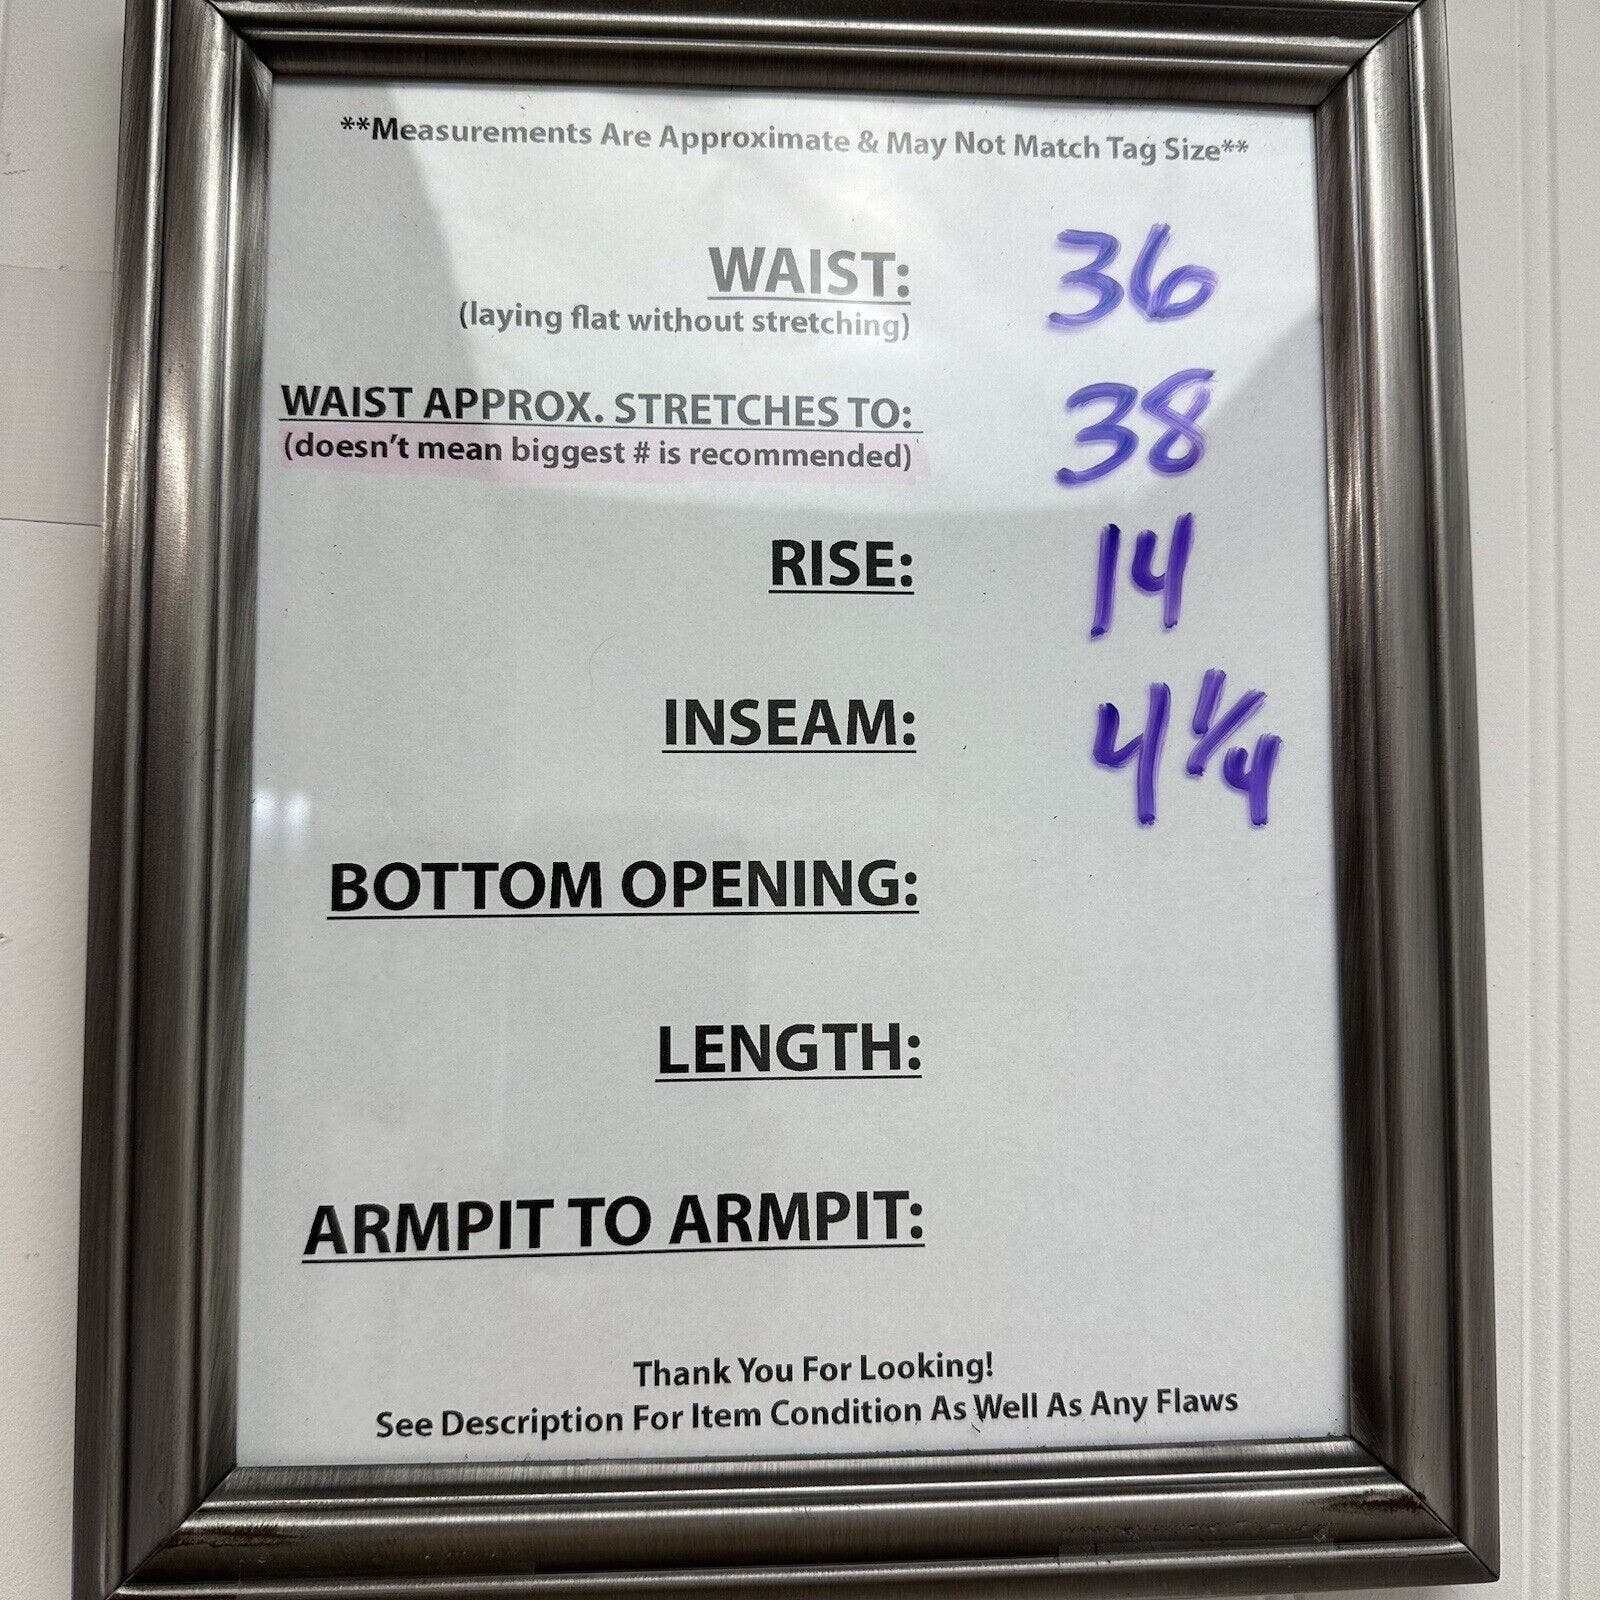 **Measurements Are Approximate & May Not Match Tag Size**
WAIST: 36
(laying flat without stretching)
WAIST APPROX. STRETCHES TO: 38
(doesn't mean biggest # is recommended)
RISE: 14
INSEAM: 4 1/4
BOTTOM OPENING:
LENGTH:
ARMPIT TO ARMPIT:
Thank You For Looking!
See Description For Item Condition As Well As Any Flaws